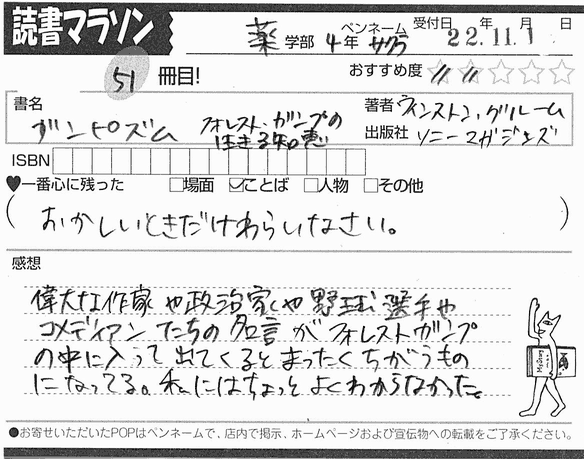 読書マラソン
薬学部 4年 ペンネーム サクラ 受付日 22年11月1日
51冊目! おすすめ度 ☆☆☆☆☆
書名 ガンピズム フォレスト・ガンプの生きる知恵
著者 ウィンストン・グルーム
出版社 ソニーマガジンズ
ISBN
♥一番心に残った □場面 ☑ことば □人物 □その他
(おかしいときだけわらいなさい。)
感想
偉大な作家や政治家や野球選手や
コメディアンたちの名言がフォレストガンプ
の中に入って出てくるとまったくちがうもの
になってる。私にはちょっとよくわからなかった。
●お寄せいただいたPOPはペンネームで、店内で掲示、ホームページおよび宣伝物への転載をご了承ください。